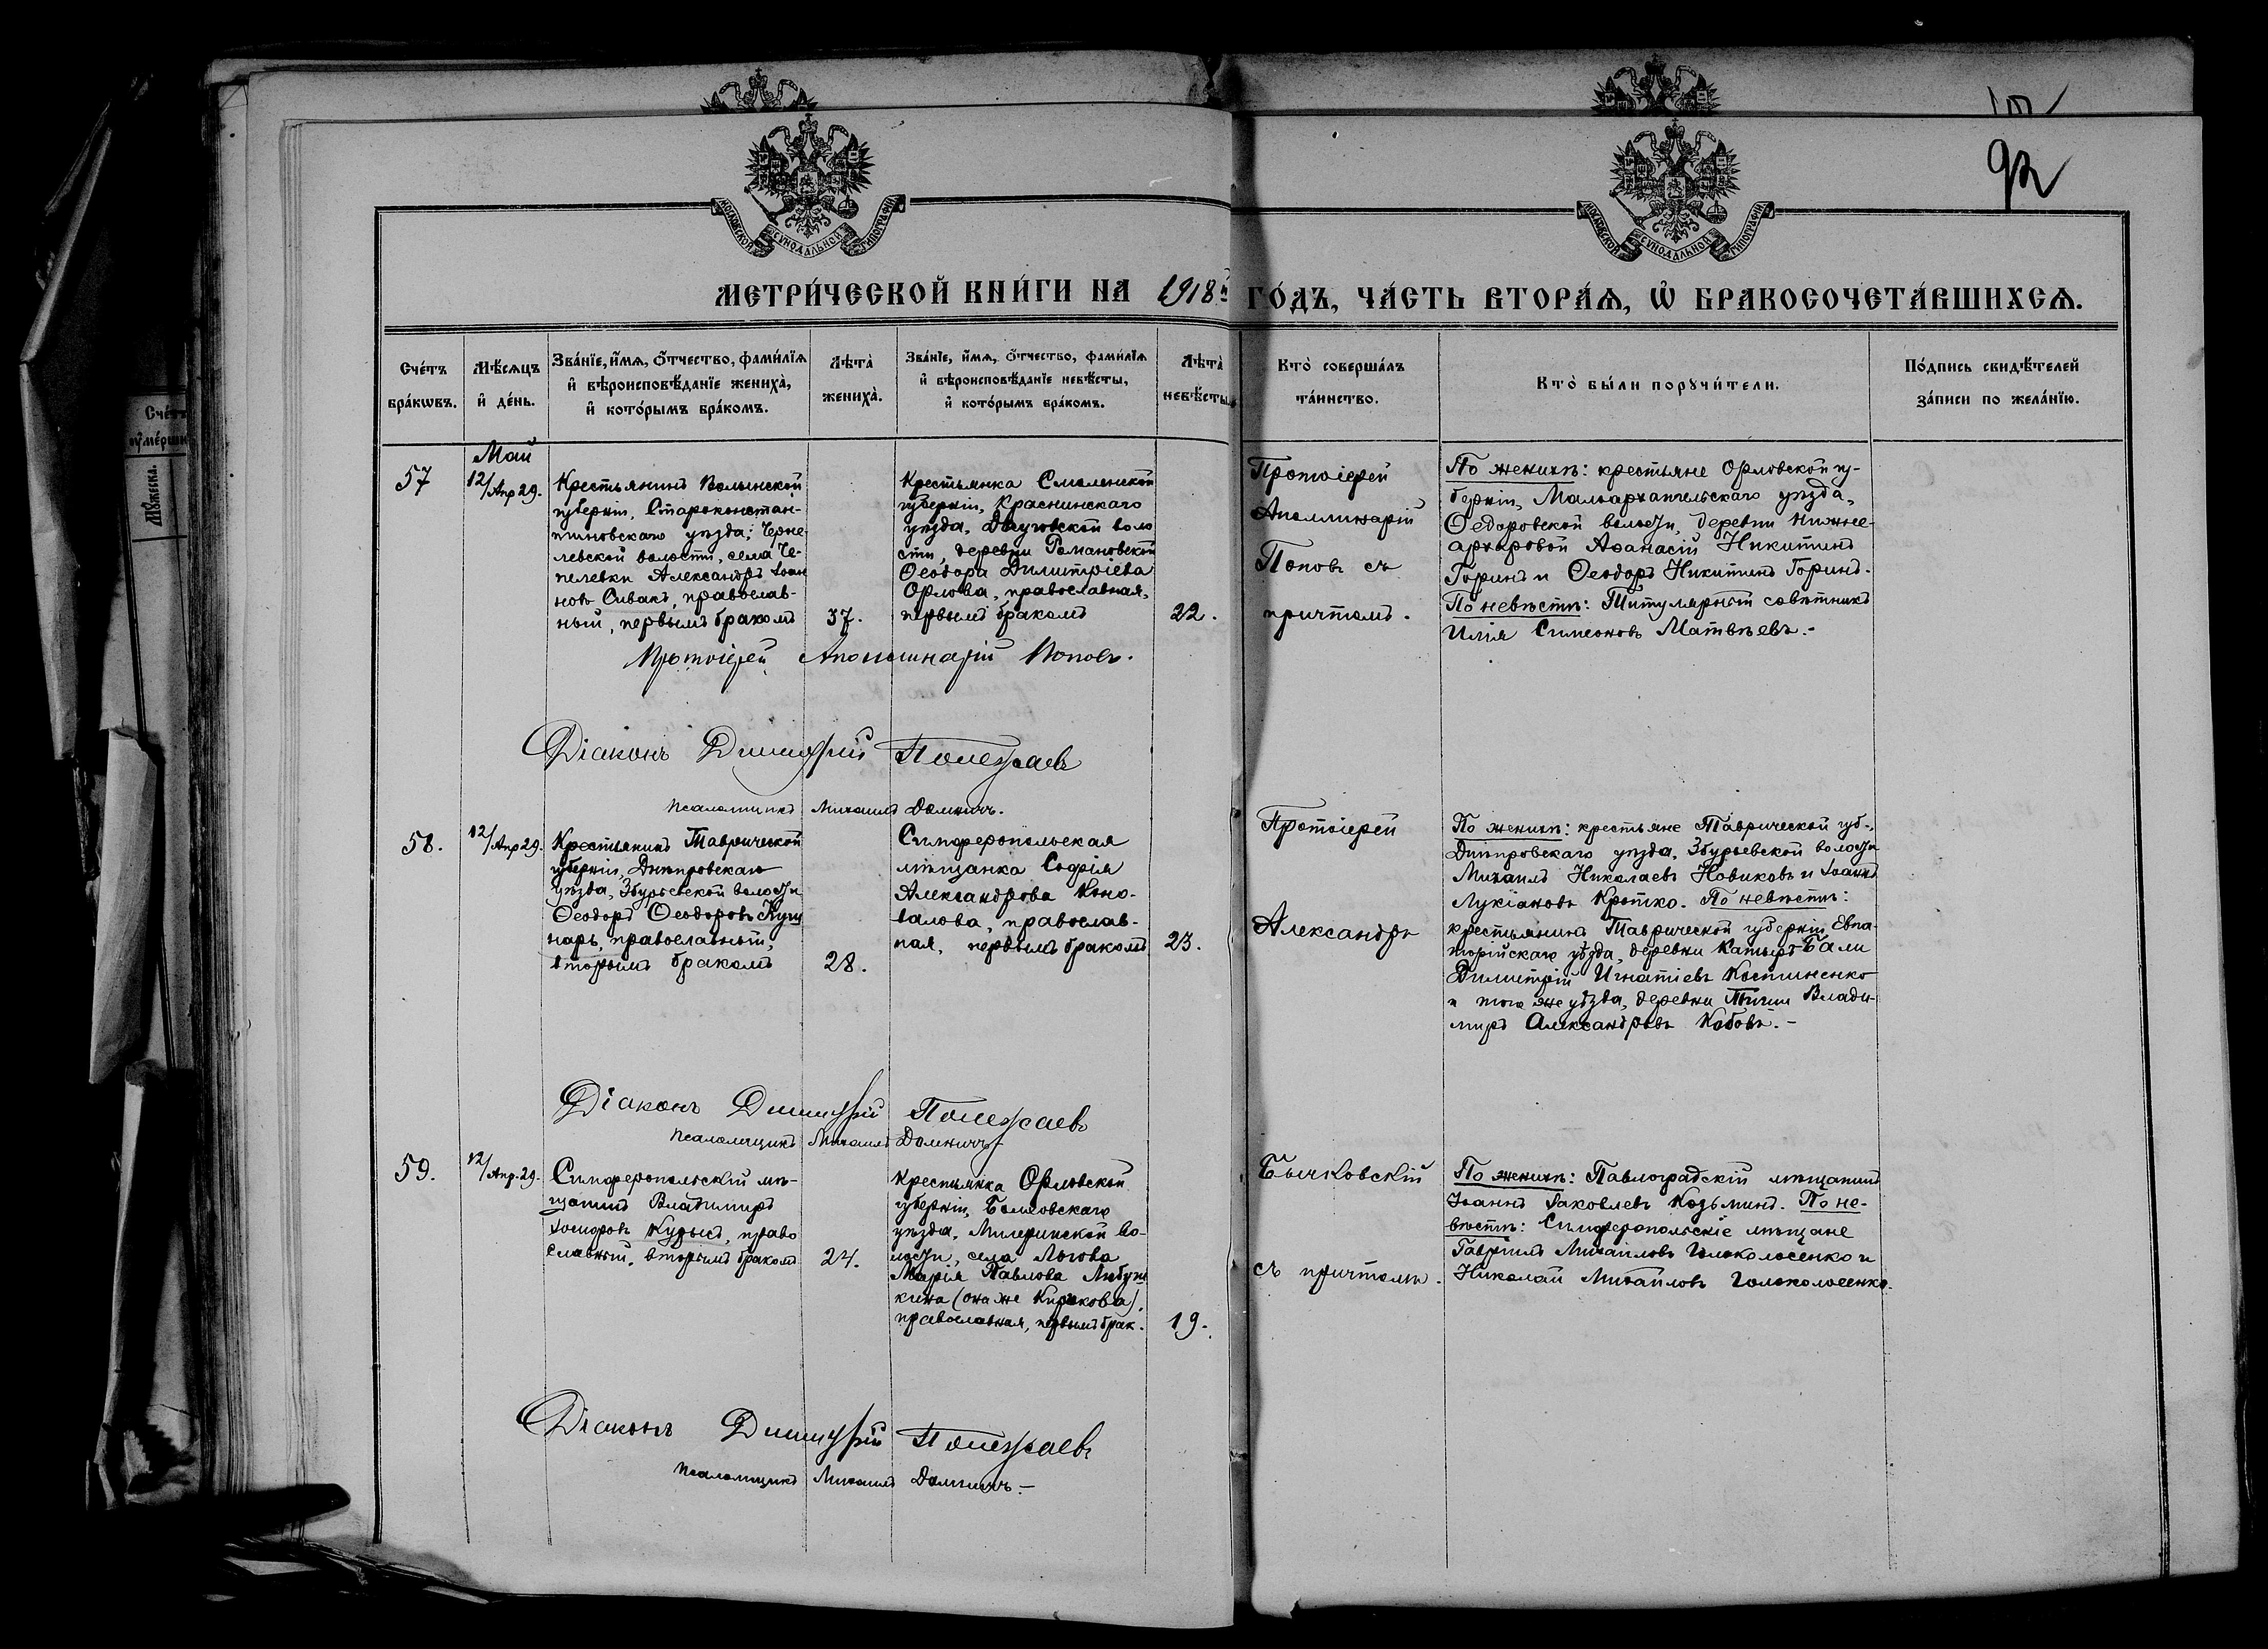 92
МОСКОВСКОЙ СѴНОДАЛЬНОЙ ТИПОГРАФІИ
МОСКОВСКОЙ СѴНОДАЛЬНОЙ ТИПОГРАФІИ
МЕТРИ́ЧЕСКОЙ КНИ́ГИ НА 1918й ГО́ДЪ, ЧА́СТЬ ВТОРА́Ѧ, Ѡ҆ БРАКОСОЧЕТА́ВШИХСѦ.
Сче́тъ
бра́кωвъ.
Мѣ́сѧцъ
и҆ де́нь.
Зва́нїе, и҆́мѧ, ѻ҆́тчество, фами́лїѧ
и҆ вѣроисповѣ́данїе жениха̀,
и҆ кото́рымъ бра́комъ.
Лѣ́та
жениха̀.
Зва́нїе, и҆́мѧ, ѻ҆́тчество, фами́лїѧ
и҆ вѣроисповѣ́данїе невѣ́сты,
и҆ кото́рымъ бра́комъ.
Лѣ́та
невѣ́сты.
Кто̀ соверша́лъ
та́инство.
Кто̀ бы́ли порꙋчи́тели.
По́дпись свидѣ́телей
за́писи по жела́нїю.
Сче́тъ
Мꙋ́жеска.
Май
57
12/Апр 29.
Крестьянинъ Волынской
губерніи, Староконстан-
тиновскаго уѣзда, Черне
левской волости, села Че-
пелевки Александръ Іоан
новъ Сивакъ, православ-
ный, первымъ бракомъ
37.
Крестьянка Смоленской
губерніи, Краснинскаго
уѣзда, воло
сти, деревни Романовской
Ѳеодора Димитріева
Орлова, православная,
первымъ бракомъ
22.
Протоіерей
Аполлинарій
Поповъ съ
причтомъ.
По женихѣ: крестьяне Орловской гу-
берніи, Малоархангельскаго уѣзда,
Ѳедоровской волости, деревни Нижне-
Аѳанасій Никитинъ
Горинъ и Ѳеодоръ Никитинъ Горинъ.
По невѣстѣ: Титулярный совѣтникъ
Илія Симеоновъ Матвѣевъ.-
Протоіерей Аполлинарій Поповъ.
Діаконъ Димитрій Полежаевъ
Псаломщикъ Михаилъ Домничъ.
58.
12/Апр 29.
Крестьянинъ Таврической
губерніи, Днѣпровскаго
уѣзда, Збурьевской волости
Ѳеодоръ Ѳеодоровъ Куш
наръ, православный,
вторымъ бракомъ
28.
Симферопольская
мѣщанка Софія
Александрова Коно-
валова, православ-
ная, первымъ бракомъ
23.
Протоіерей
Александръ
По женихѣ: крестьяне Таврической губ.,
Днѣпровскаго уѣзда, Збурьевской волости
Михаилъ Николаевъ Новиковъ и Іоаннъ
Лукіановъ Кротко. По невѣстѣ:
крестьянинъ Таврической губерніи, Евпа-
торійскаго уѣзда, деревни Бали
Димитрій Игнатіевъ Костиненко
и того же уѣзда, деревни Влади-
міръ Александровъ Кабовъ.-
Діаконъ Димитрій Полежаевъ
Псаломщикъ Михаилъ Домничъ
59.
12/Апр. 29.
Симферопольскій мѣ-
щанинъ Владиміръ
Іосифовъ Курысъ, право
славный, вторымъ бракомъ
24.
Крестьянка Орловской
губерніи, Болховскаго
уѣзда, во-
лости, села Логова
Марія Павлова Любуш
кина (она же Киракова),
православная, первымъ брак.
19.
Бычковскій
съ причтомъ.
По женихѣ: Павлоградскій мѣщанинъ
Іоаннъ Яковлевъ Козьминъ. По не-
вѣстѣ: Симферопольскіе мѣщане
Гавріилъ Михайловъ Голоколосенко и
Николай Михайловъ Голоколосенко.
Діаконъ Димитрій Полежаевъ
Псаломщикъ Михаилъ Домничъ.-